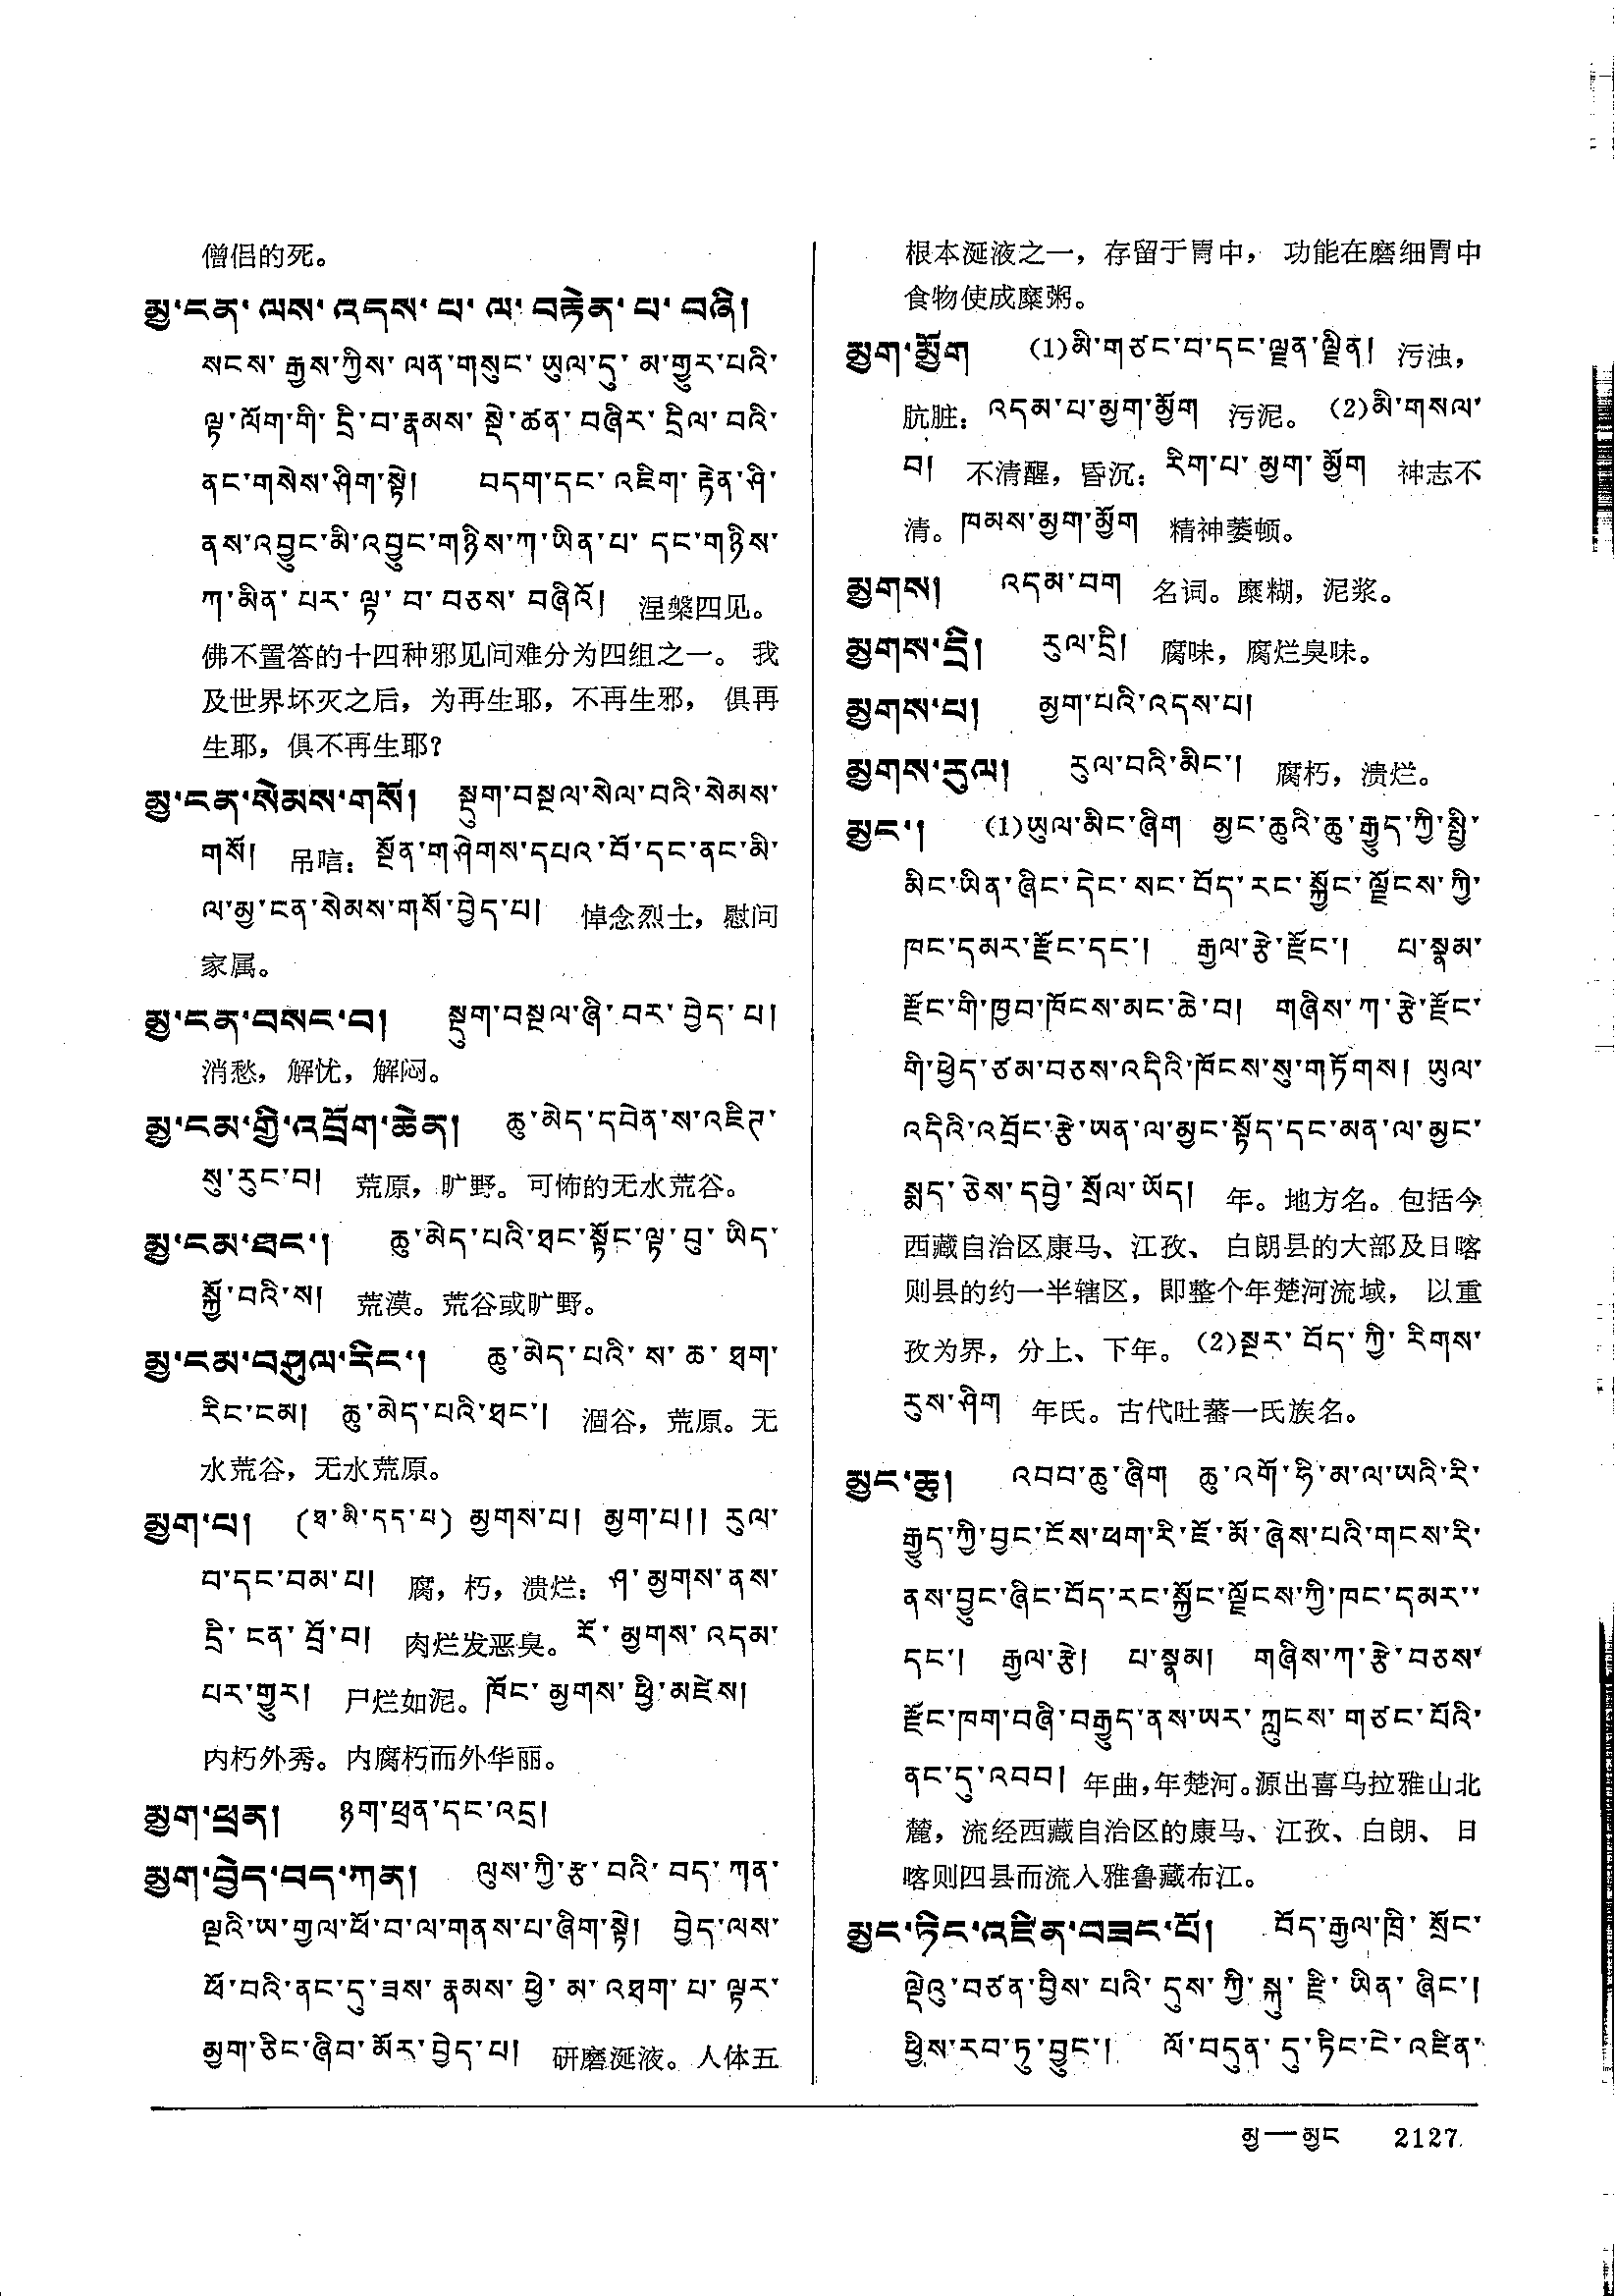 僧侣的死。
མྱ་ངན་ལས་འདས་པ་ལ་བརྟེན་པ་བཞི།
སངས་རྒྱས་ཀྱིས་ལན་གསུང་ཡུལ་དུ་མ་གྱུར་པའི་
ལྟ་ལོག་གི་དྲི་བ་རྣམས་སྡེ་ཚན་བཞིར་དྲིལ་བའི་
ནང་གསེས་ཤིག་སྟེ། བདག་དང་འཇིག་རྟེན་ཤི་
ནས་འབྱུང་མི་འབྱུང་གཉིས་ཀ་ཡིན་པ་དང་གཉིས་
ཀ་མིན་པར་ལྟ་བ་བཅས་བཞིའོ། 涅槃四见。
佛不置答的十四种邪见问难分为四组之一。我
及世界坏灭之后，为再生耶，不再生邪，俱再
生耶，俱不再生耶？
མྱ་ངན་སེམས་གསོ། སྡུག་བསྔལ་སེལ་བའི་སེམས་
གསོ། 吊唁：སྔོན་གཤེགས་དཔའ་བོ་དང་ནང་མི་
ལ་མྱ་ངན་སེམས་གསོ་བྱེད་པ། 悼念烈士，慰问
家属。
མྱ་ངན་བསང་བ། སྡུག་བསྔལ་ཞི་བར་བྱེད་པ།
消愁，解忧，解闷。
མྱ་ངམ་གྱི་འབྲོག་ཆེན། ཆུ་མེད་དབེན་ས་འཇིག་
སུ་རུང་བ། 荒原，旷野。可怖的无水荒谷。
མྱ་ངམ་ཐང་། ཆུ་མེད་པའི་ཐང་སྟོང་ལྟ་བུ་ཡིད་
སྐྱོ་བའི་ས། 荒漠。荒谷或旷野。
མྱ་ངམ་བཤུལ་རིང་། ཆུ་མེད་པའི་ས་ཆ་ཐག་
རིང་ངམ། ཆུ་མེད་པའི་ཐང་། 涸谷，荒原。无
水荒谷，无水荒原。
མྱག་པ། (ཐ་མི་དད་པ) མྱགས་པ། མྱག་པ།། རུལ་
བ་དང་བམ་པ། 腐，朽，溃烂：ཤ་མྱགས་ནས་
དྲི་ངན་བྲོ་བ། 肉烂发恶臭。རོ་མྱགས་འདམ་
པར་གྱུར། 尸烂如泥。ཁོང་མྱགས་ཕྱི་མཛེས།
内朽外秀。内腐朽而外华丽。
མྱག་ཕྲན། ཉག་ཕྲན་དང་འདྲ།
མྱག་བྱེད་བད་ཀན། ལུས་ཀྱི་རྩ་བའི་བད་ཀན་
ལྔའི་ཨ་གྱལ་ཕོ་བ་ལ་གནས་པ་ཞིག་སྟེ། བྱེད་ལས་
ཕོ་བའི་ནང་དུ་ཟས་རྣམས་ཕྱེ་མ་འཐག་པ་ལྟར་
མྱག་ཅིང་ཞིབ་མོར་བྱེད་པ། 研磨涎液。人体五
根本涎液之一，存留于胃中，功能在磨细胃中
食物使成糜粥。
མྱག་མྱོག (1)མི་གཙང་བ་དང་ལྡན་ལྡིན། 污浊，
肮脏：འདམ་པ་མྱག་མྱོག 污泥。(2)མི་གསལ་
བ། 不清醒，昏沉：རིག་པ་མྱག་མྱོག 神志不
清。ཁམས་མྱག་མྱོག 精神萎顿。
མྱགས། འདམ་བག 名词。糜糊，泥浆。
མྱགས་དྲི། རུལ་དྲི། 腐味，腐烂臭味。
མྱགས་པ། མྱག་པའི་འདས་པ།
མྱགས་རུལ། རུལ་བའི་མིང་། 腐朽，溃烂。
མྱང་། (1)ཡུལ་མིང་ཞིག མྱང་ཆུའི་ཆུ་རྒྱུད་ཀྱི་སྤྱི་
མིང་ཡིན་ཞིང་དེང་སང་བོད་རང་སྐྱོང་ལྗོངས་ཀྱི་
ཁང་དམར་རྫོང་དང་། རྒྱལ་རྩེ་རྫོང་། པ་སྣམ་
རྫོང་གི་ཁྱབ་ཁོངས་མང་ཆེ་བ། གཞིས་ཀ་རྩེ་རྫོང་
གི་ཕྱེད་ཙམ་བཅས་འདིའི་ཁོངས་སུ་གཏོགས། ཡུལ་
འདིའི་འབྲོང་རྩེ་ཡན་ལ་མྱང་སྟོད་དང་མན་ལ་མྱང་
སྨད་ཅེས་དབྱེ་སྲོལ་ཡོད། 年。地方名。包括今
西藏自治区康马、江孜、白朗县的大部及日喀
则县的约一半辖区，即整个年楚河流域，以重
孜为界，分上、下年。(2)སྔར་བོད་ཀྱི་རིགས་
རུས་ཤིག 年氏。古代吐蕃一氏族名。
མྱང་ཆུ། འབབ་ཆུ་ཞིག ཆུ་འགོ་ཧི་མ་ལ་ཡའི་རི་
རྒྱུད་ཀྱི་བྱང་ངོས་ཕག་རི་ཇོ་མོ་ཞེས་པའི་གངས་རི་
ནས་བྱུང་ཞིང་བོད་རང་སྐྱོང་ལྗོངས་ཀྱི་ཁང་དམར་
དང་། རྒྱལ་རྩེ། པ་སྣམ། གཞིས་ཀ་རྩེ་བཅས་
རྫོང་ཁག་བཞི་བརྒྱུད་ནས་ཡར་ཀླུངས་གཙང་པོའི་
ནང་དུ་འབབ། 年曲，年楚河。源出喜马拉雅山北
麓，流经西藏自治区的康马、江孜、白朗、日
喀则四县而流入雅鲁藏布江。
མྱང་ཏིང་འཛིན་བཟང་པོ། བོད་རྒྱལ་ཁྲི་སྲོང་
ལྡེའུ་བཙན་བྱིས་པའི་དུས་ཀྱི་སྐུ་རྫི་ཡིན་ཞིང་།
ཕྱིས་རབ་ཏུ་བྱུང་། ལོ་བདུན་དུ་ཏིང་ངེ་འཛིན་
མྱ—མྱང 2127